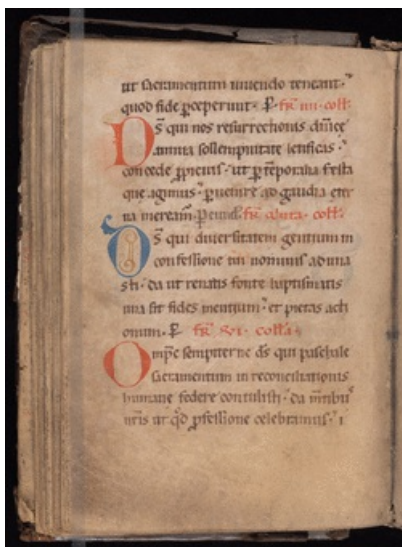 ut sacramentum uiuendo teneant.
quod fide pceperunt. P. fr iiii. coll.
Ds qui nos resurrectionis dnice
annua sollempnitate letificas.
concede ppicius. ut p teporalia festa
que agimus. puenire ad gaudia eter
na meream. P eund. fr quinta. coll.
Ds qui diuersitatem gentium in
confessione tui nominis aduna
sti. da ut renatis fonte baptismatis
una sit fides mentium. et pietas acti
onum. P fr vi. colla.
Omps sempiterne ds qui paschale
sacramentum in reconciliationis
humane federe contulisti. da mtibus
nris ut qd pfessione celebramus.